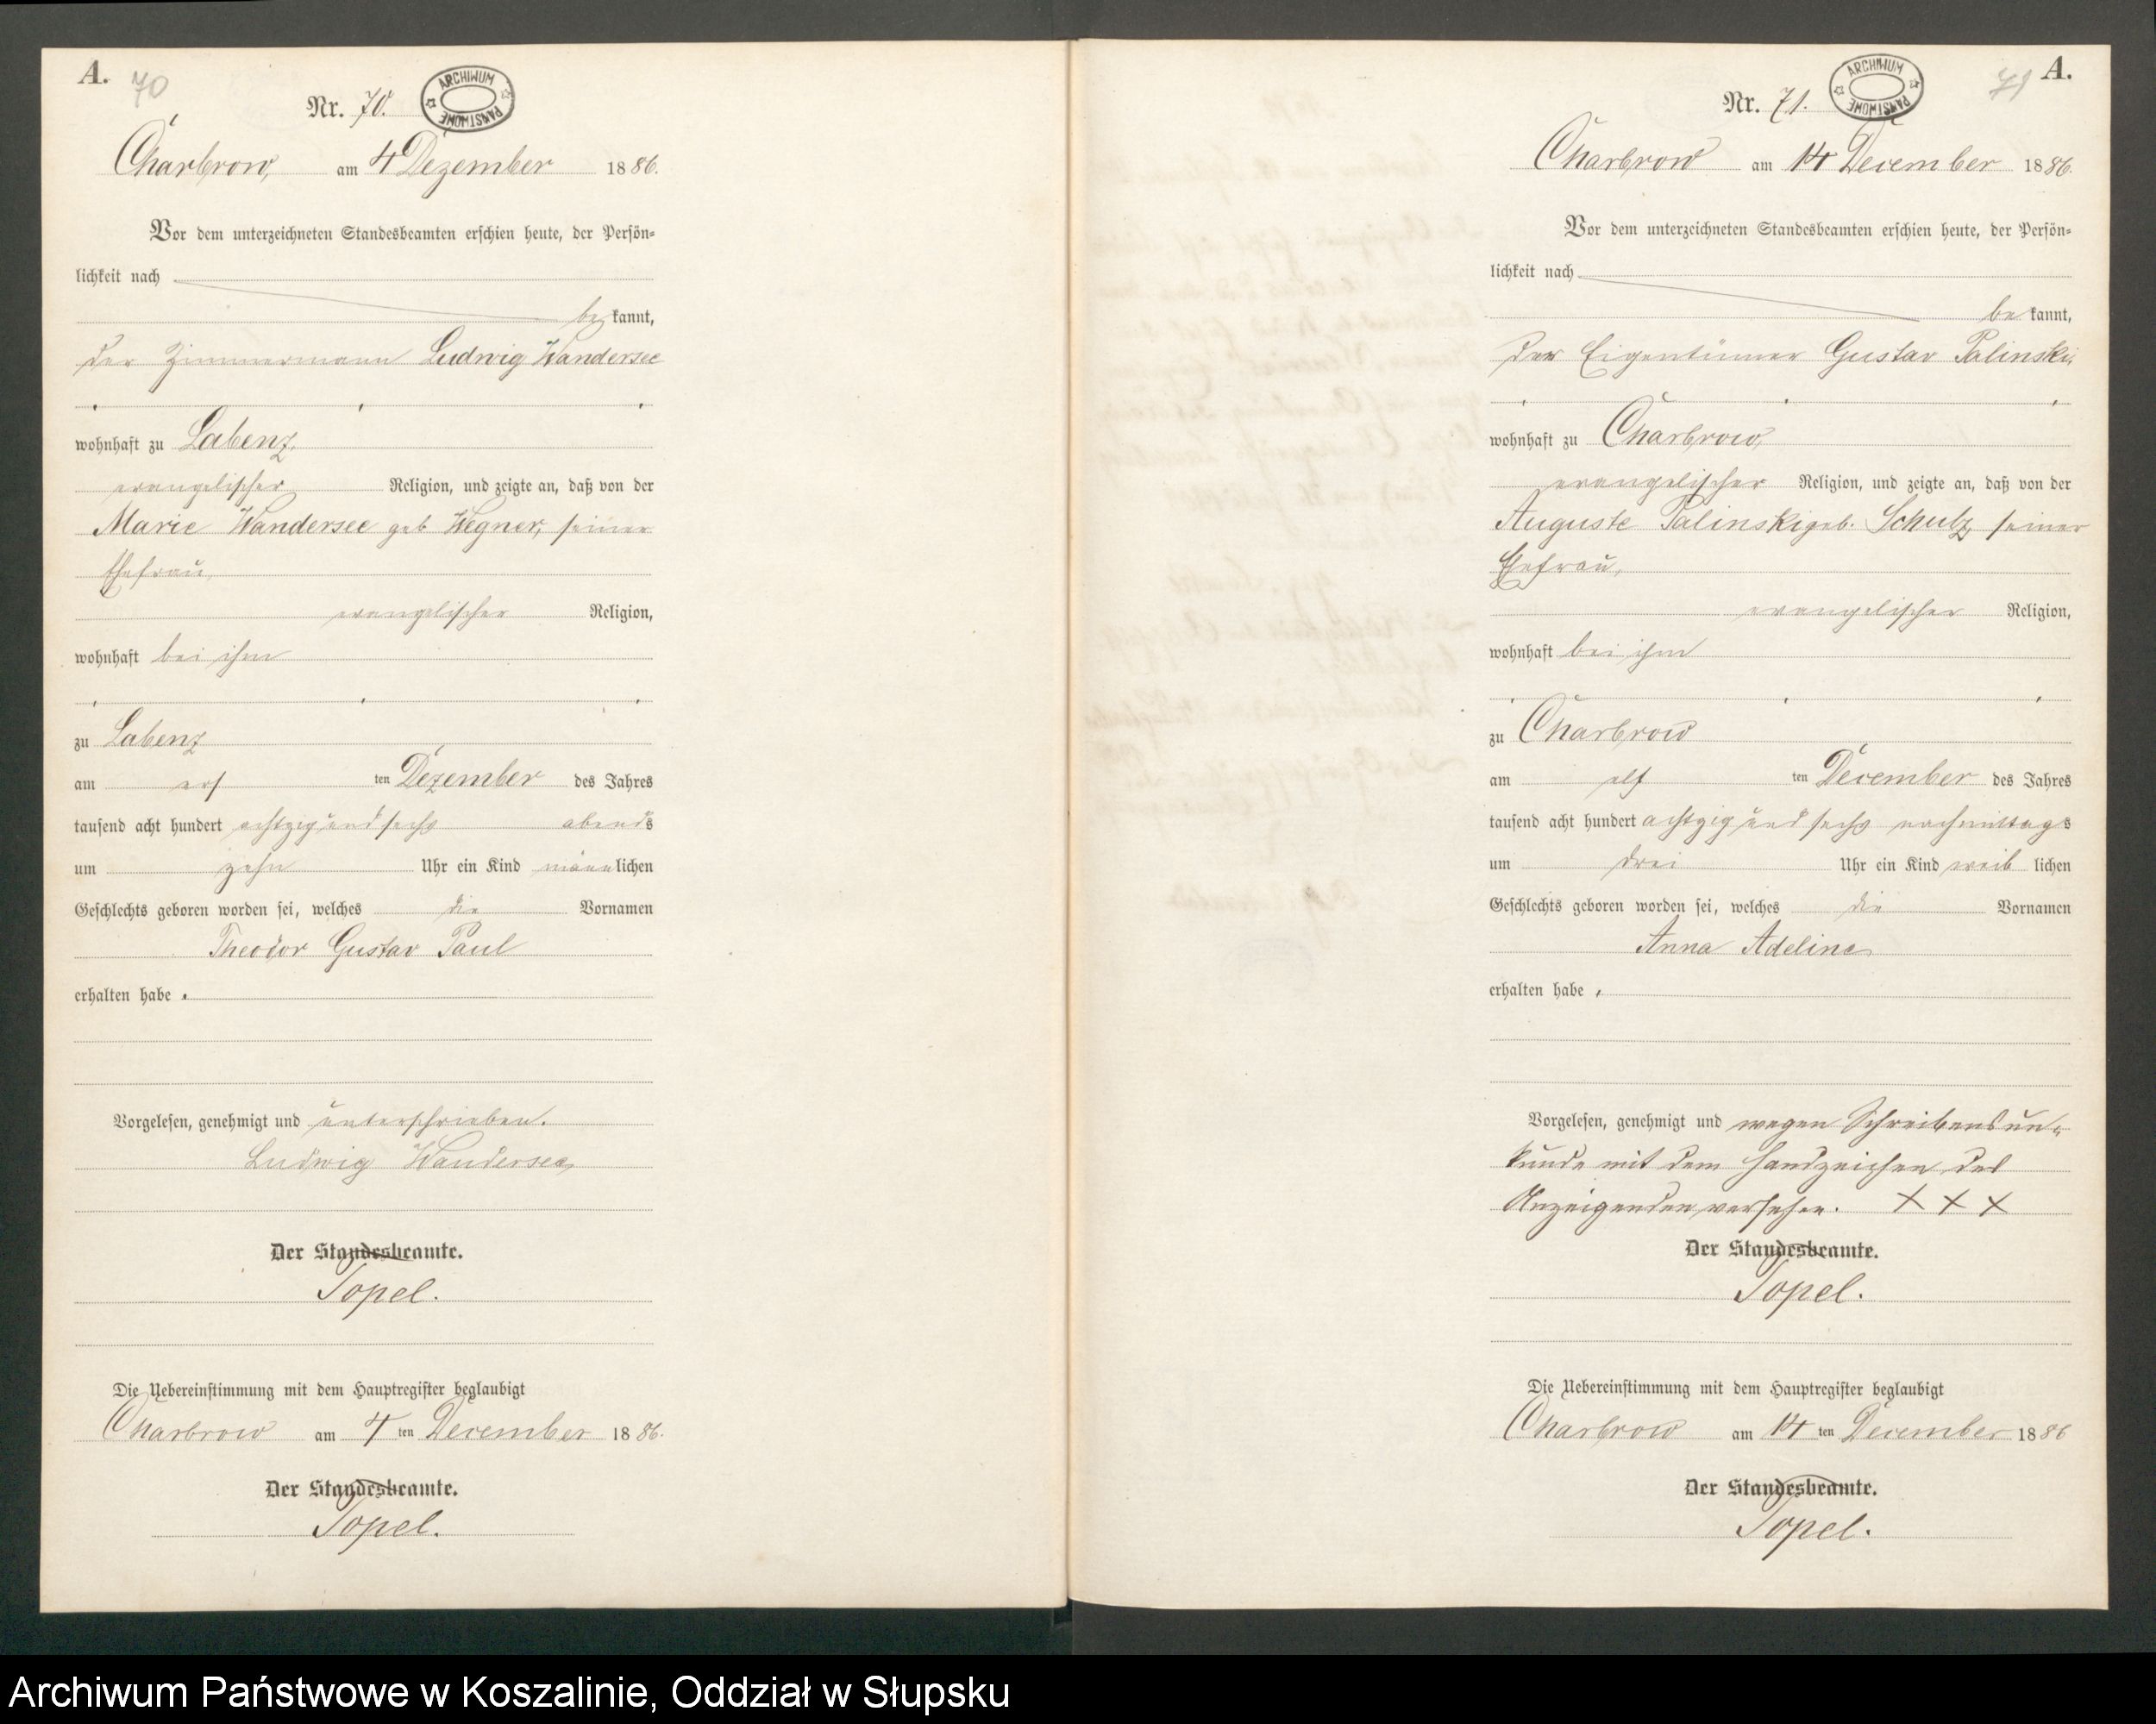 A.
70
Nr. 70.
ARCHIWUM PAŃSTWOWE
Charbrow, am 4 Dezember 1886.
Vor dem unterzeichneten Standesbeamten erschien heute, der Persön-
lichkeit nach
be kannt,
der Zimmermann Ludwig Wandersee
wohnhaft zu Labenz,
evangelischer Religion, und zeigte an, daß von der
Marie Wandersee geb Wegner, seiner
Ehefrau,
evangelischer Religion,
wohnhaft bei ihm
zu Labenz
am ten Dezember des Jahres
tausend acht hundert achtzig und sechs abends
um zehn Uhr ein Kind männlichen
Geschlechts geboren worden sei, welches die Vornamen
Theodor Gustav Paul
erhalten habe.
Vorgelesen, genehmigt und unterschrieben.
Ludwig Wandersee
Der Standesbeamte.
Topel.
Die Uebereinstimmung mit dem Hauptregister beglaubigt
Charbrow am 4 ten December 1886.
Der Standesbeamte.
Topel.
A.
71
Nr. 71.
ARCHIWUM PAŃSTWOWE
Charbrow am 14 December 1886.
Vor dem unterzeichneten Standesbeamten erschien heute, der Persön-
lichkeit nach
be kannt,
der Eigentümer Gustav Palinski,
wohnhaft zu Charbrow,
evangelischer Religion, und zeigte an, daß von der
Auguste Palinski geb. Schulz seiner
Ehefrau,
evangelischer Religion,
wohnhaft bei ihm
zu Charbrow
am elf ten December des Jahres
tausend acht hundert achtzig und sechs nachmittags
um drei Uhr ein Kind weib lichen
Geschlechts geboren worden sei, welches die Vornamen
Anna Adeline
erhalten habe.
Vorgelesen, genehmigt und wegen Schreibensun-
kunde mit dem Handzeichen des
Anzeigenden versehen. X X X
Der Standesbeamte.
Topel.
Die Uebereinstimmung mit dem Hauptregister beglaubigt
Charbrow am 14 ten December 1886
Der Standesbeamte.
Topel.
Archiwum Państwowe w Koszalinie, Oddział w Słupsku